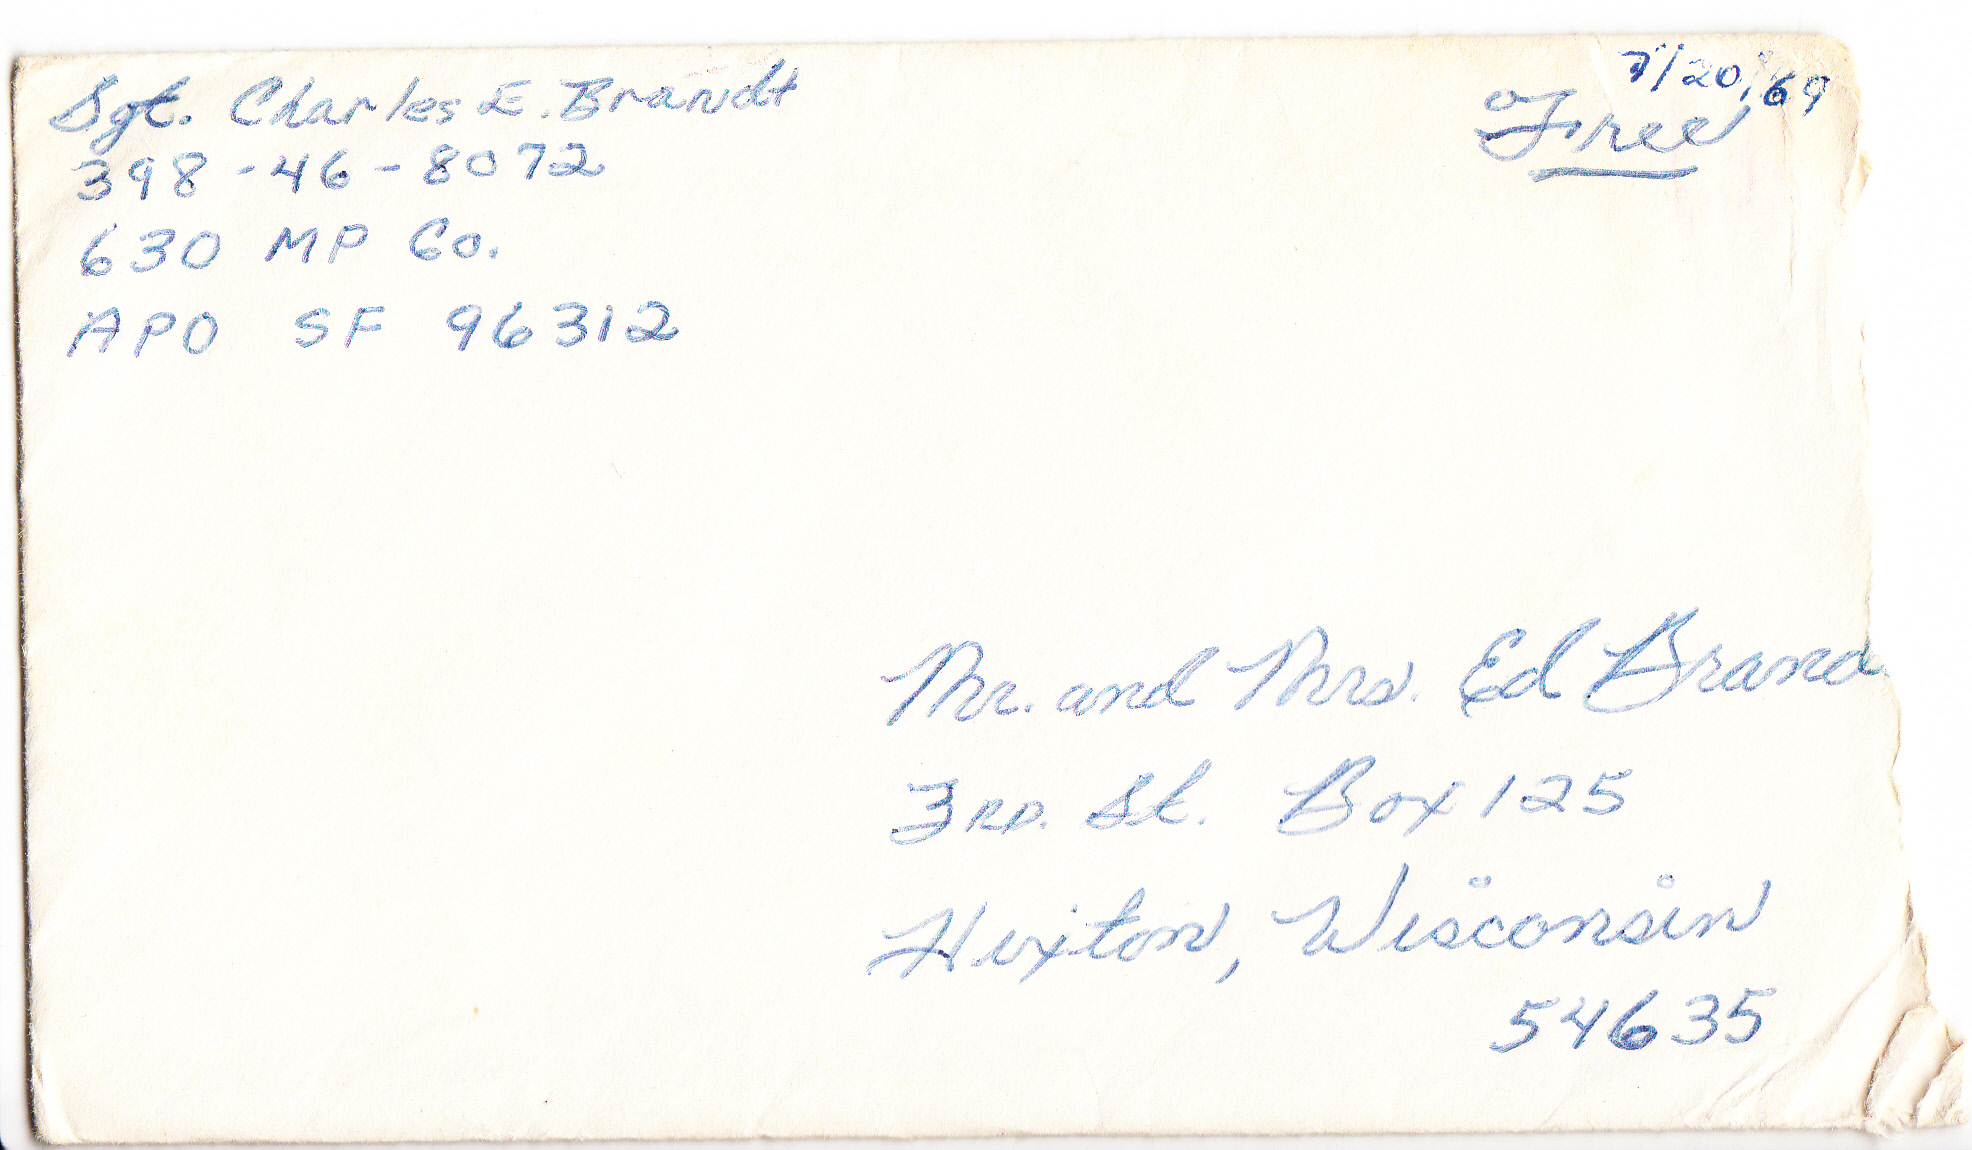 Sgt. Charles E. Brandt
7/20/69
Free
398-46-8072
630 MP Co.
APO SF 96312
Mr. and Mrs. Ed Brand
3RD. St. Box 125
Hixton, Wisconsin
54635